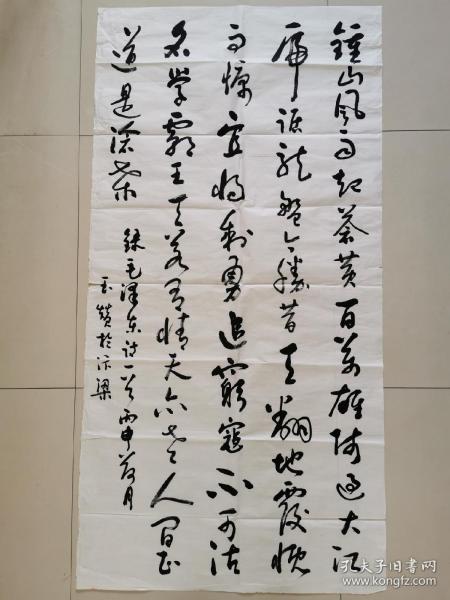 鍾山風雨起蒼黄百萬雄师過大江
虎踞龍盤今勝昔天翻地覆慨
而慷宜将剩勇追窮寇不可沽
名學霸王天若有情天亦老人间正
道是滄桑
錄毛澤東诗一首丙申月
玉於汴梁
孔夫子旧书网
www.kongfz.com